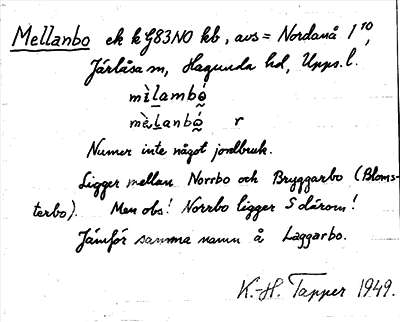 Mellanbo ek k G83NO kb, avs = Nordanå 1¹⁰,
Järlåsa sn, Hagunda hd, Upps. l.
mìlambó̰
mὲlanbó̰ r
Numer inte något jordbruk.
Ligger mellan Norrbo och Bryggarbo (Bloms-
terbo). Men obs! Norrbo ligger S därom!
Jämför samma namn å Laggarbo.
K.-H. Tapper 1949.